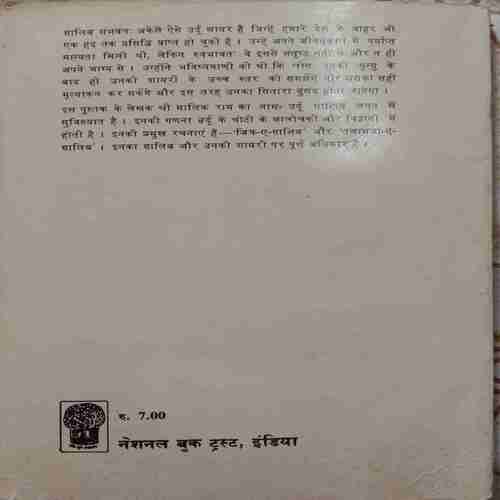 ग़ालिब संभवतः अकेले ऐसे उर्दू शायर हैं जिन्हें हमारे देश के बाहर भी
एक हद तक प्रसिद्धि प्राप्त हो चुकी है । उन्हें अपने जीवनकाल में पर्याप्त
मान्यता मिली थी, लेकिन स्वभावतः वे इससे संतुष्ट नहीं थे और न ही
अपने भाग्य से । उन्होंने भविष्यवाणी की थी कि लोग उनकी मृत्यु के
बाद ही उनकी शायरी के उच्च स्तर को समझेंगे और उसका सही
मूल्यांकन कर सकेंगे और इस तरह उनका सितारा बुलंद होता रहेगा ।
इस पुस्तक के लेखक श्री मालिक राम का नाम उर्दू साहित्य जगत में
सुविख्यात है । इनकी गणना उर्दू के चोटी के आलोचकों और विद्वानों में
होती है । इनकी प्रमुख रचनाएं हैं—'ज़िक्र-ए-ग़ालिब' और 'तलामज़ा-ए-
ग़ालिब' । इनका ग़ालिब और उनकी शायरी पर पूर्ण अधिकार है ।
रु. 7.00
नेशनल बुक ट्रस्ट, इंडिया